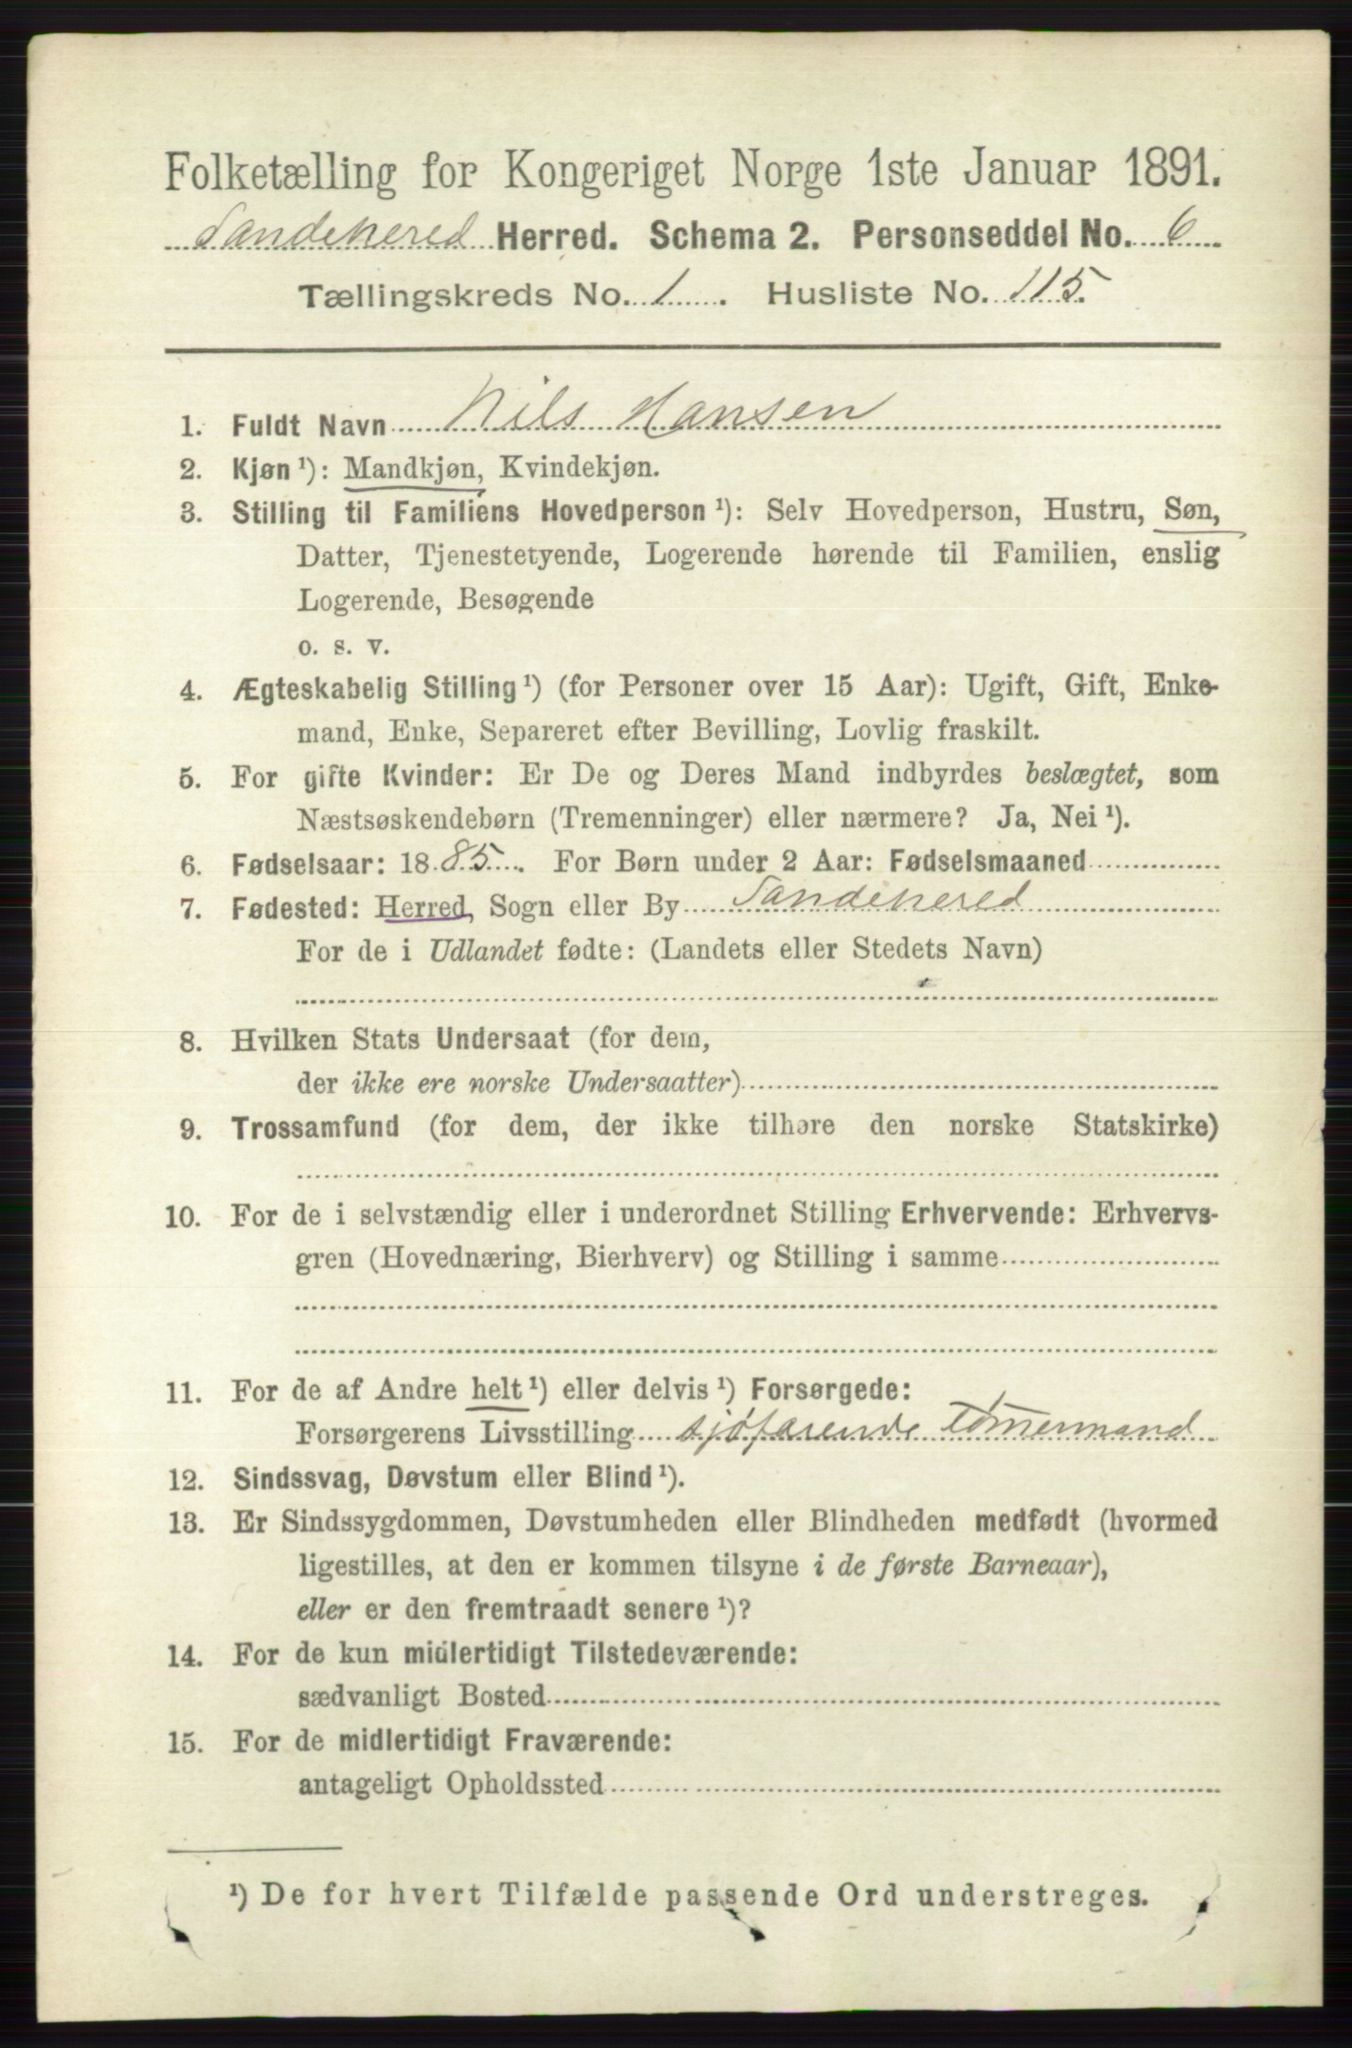 Folketælling for Kongeriget Norge 1ste Januar 1891.
Sandehered Herred. Schema 2. Personseddel No. 6
Tællingskreds No. 1. Husliste No. 115.
1. Fuldt Navn Nils Hansen
2. Kjøn ¹): Mandkjøn, Kvindekjøn.
3. Stilling til Familiens Hovedperson ¹): Selv Hovedperson, Hustru, Søn,
Datter, Tjenestetyende, Logerende hørende til Familien, enslig
Logerende, Besøgende
o. s. v.
4. Ægteskabelig Stilling ¹) (for Personer over 15 Aar): Ugift, Gift, Enke-
mand, Enke, Separeret efter Bevilling, Lovlig fraskilt.
5. For gifte Kvinder: Er De og Deres Mand indbyrdes beslægtet, som
Næstsøskendebørn (Tremenninger) eller nærmere? Ja, Nei ¹).
6. Fødselsaar: 1885. For Børn under 2 Aar: Fødselsmaaned
7. Fødested: Herred, Sogn eller By Sandehered
For de i Udlandet fødte: (Landets eller Stedets Navn)
8. Hvilken Stats Undersaat (for dem,
der ikke ere norske Undersaatter)
9. Trossamfund (for dem, der ikke tilhøre den norske Statskirke)
10. For de i selvstændig eller i underordnet Stilling Erhvervende: Erhvervs-
gren (Hovednæring, Bierhverv) og Stilling i samme
11. For de af Andre helt ¹) eller delvis ¹) Forsørgede:
Forsørgerens Livsstilling sjöfarende Tömermand
12. Sindssvag, Døvstum eller Blind ¹).
13. Er Sindssygdommen, Døvstumheden eller Blindheden medfødt (hvormed
ligestilles, at den er kommen tilsyne i de første Barneaar),
eller er den fremtraadt senere ¹)?
14. For de kun midlertidigt Tilstedeværende:
sædvanligt Bosted
15. For de midlertidigt Fraværende:
antageligt Opholdssted
¹) De for hvert Tilfælde passende Ord understreges.